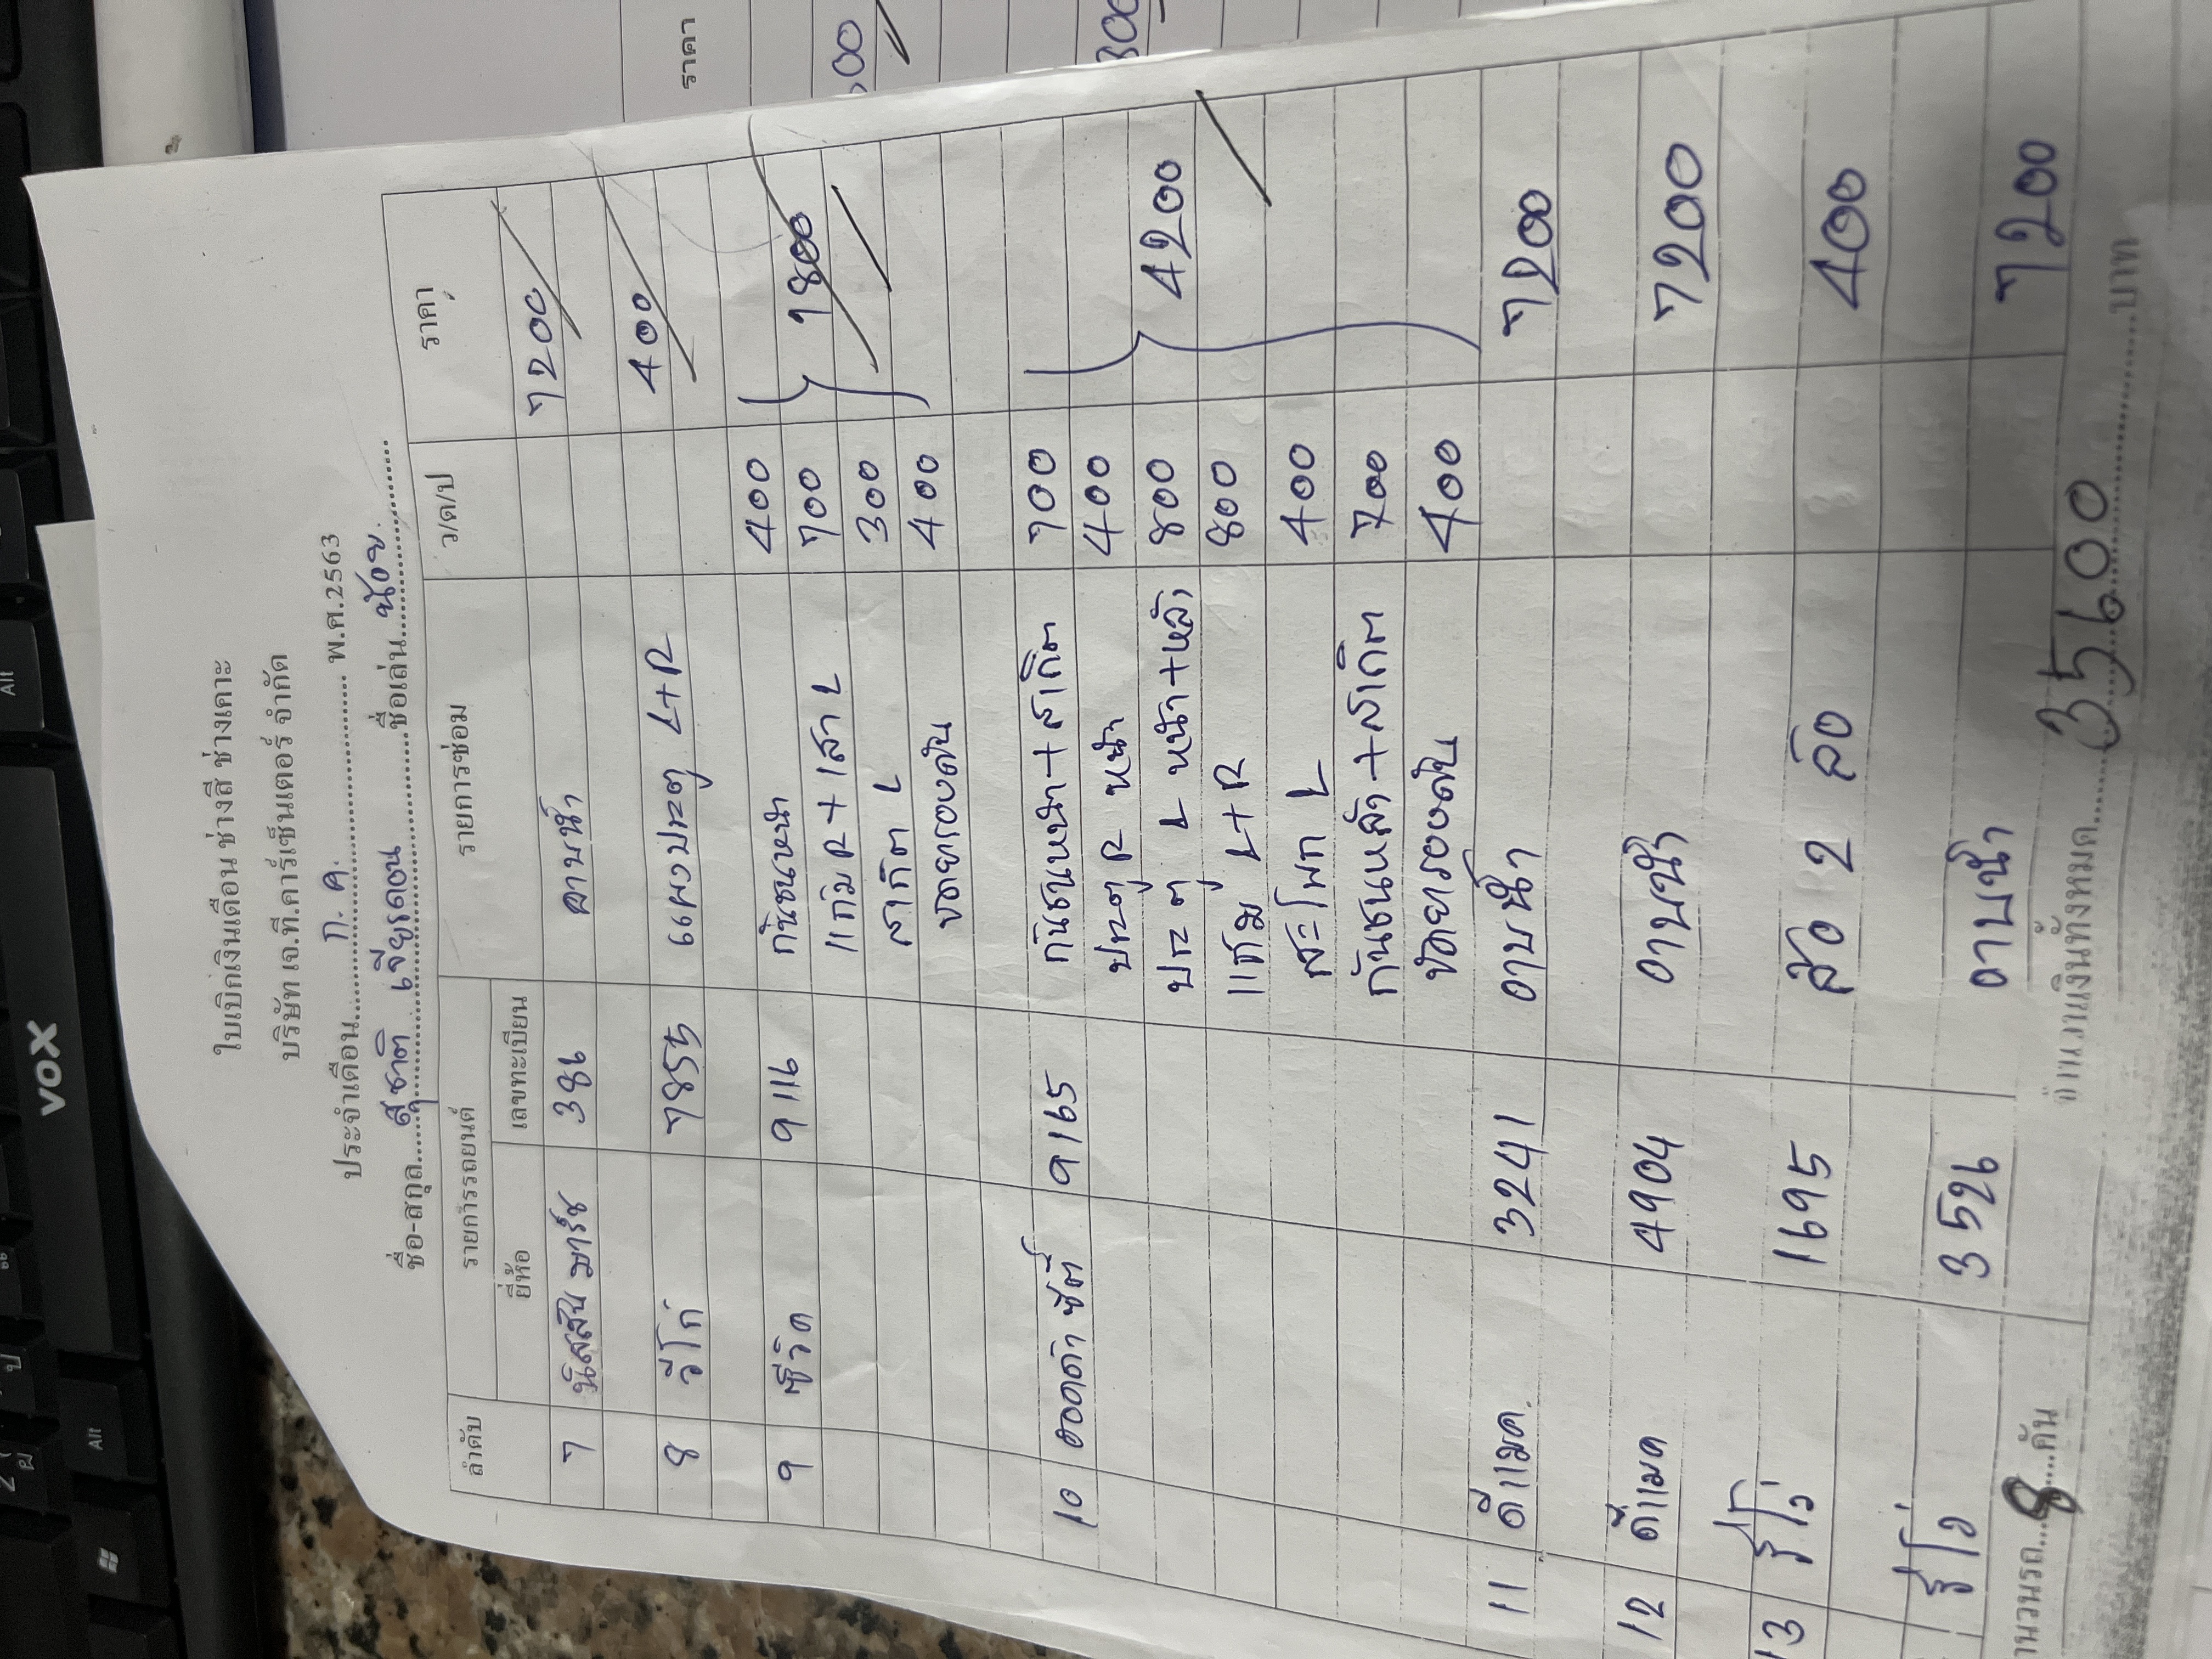 ใบเบิกเงินเดือน ช่างสี ช่างเคาะ
บริษัท เจ.ที.คาร์เซ็นเตอร์ จำกัด
ประจำเดือน ก.ค. พ.ศ.2563
ชื่อ-สกุล สุชาติ เจียรดอน ชื่อเล่น น้อย
ลำดับ รายการรถยนต์ รายการซ่อม ว/ด/ป ราคา
ยี่ห้อ เลขทะเบียน
7 นิสสัน มาร์ช 386 อาบน้ำ 7200
8 วีโก่ 7855 แผงประตู L+R 400
9 ซีวิค 9116 กันชนหน้า 400
แก้ม R + เสา L 700 1800
สเกิต L 300
ชายรองดัน 400
10 ฮอดด้า ซิตี้ 9165 กันชนหน้า+สเกิต 700
ประตู R หน้า 400
ประตู L หน้า+หลัง 800 4200
แก้ม L+R 800
สะโพก L 400
กันชนหลัง+สเกิต 700
ชายรองดัน 400
11 ดีแมค 3241 อาบน้ำ 7200
12 ดีแมค 4904 อาบน้ำ 7200
13 รีโว่ 1695 ล้อ 2 ล้อ 400
รีโว่ 3526 อาบน้ำ 7200
จำนวนรถ 8 คัน จำนวนเงินทั้งหมด 35600 บาท
ราคา
VOX
Alt
Alt